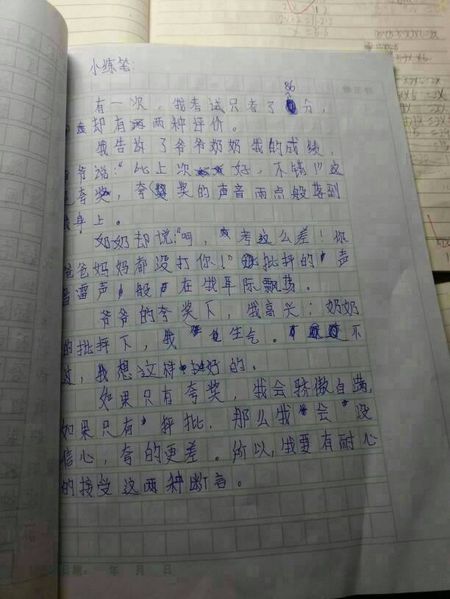 小练笔
有一次，我考试只考了86分，
却有两种评价。
我告诉了爷爷奶奶我的成绩，
爷说："比上次好，不错！"这
夸奖，夸奖的声音雨点般落到
身上。
奶奶却说："啊，考这么差！你
爸爸妈妈都没打你！"批评的声
雷声般在我耳际飘荡。
爷爷的夸奖下，我高兴；奶奶
的批评下，我生气。不
过，我想这样好的。
如果只有夸奖，我会骄傲自满，
如果只有批评，那么我会没
信心，考的更差。所以，我要有耐心
的接受这两种断言。
年 月 日